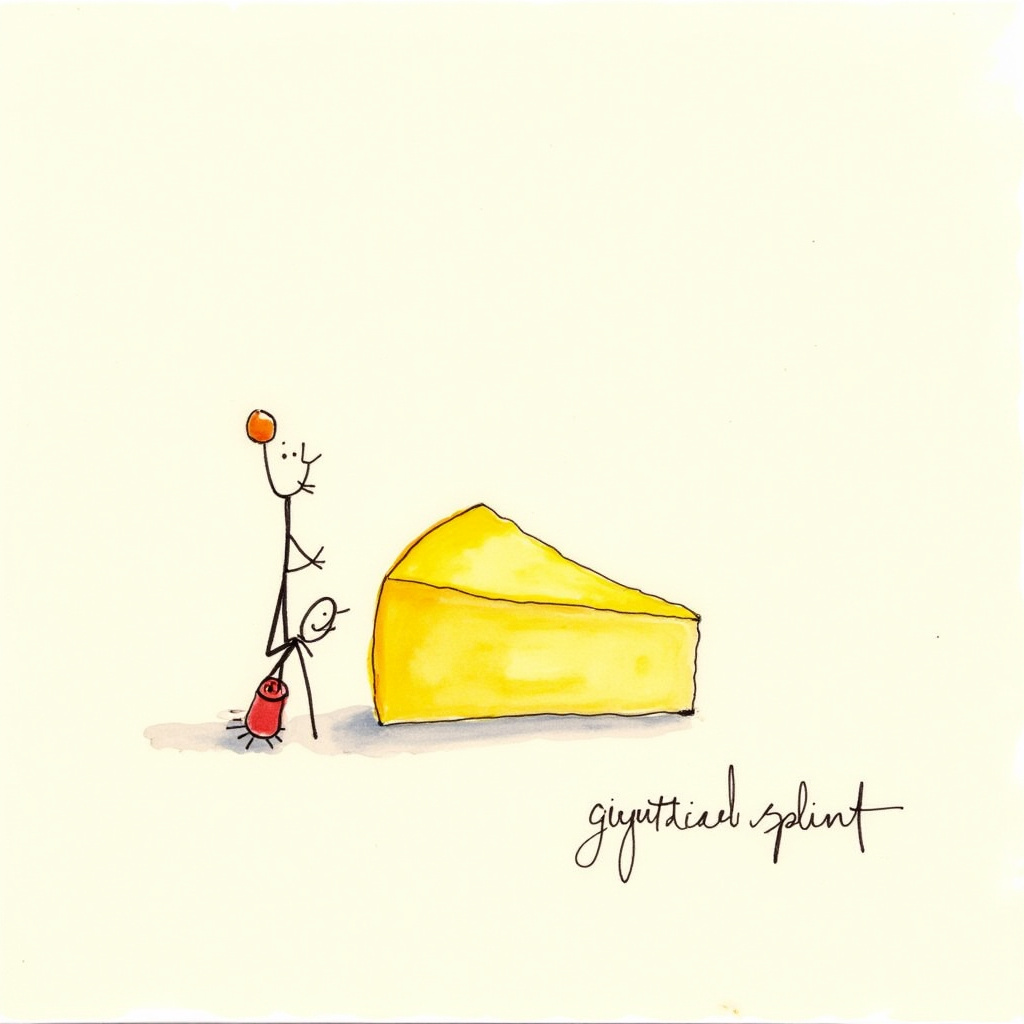 giyuttiael splint